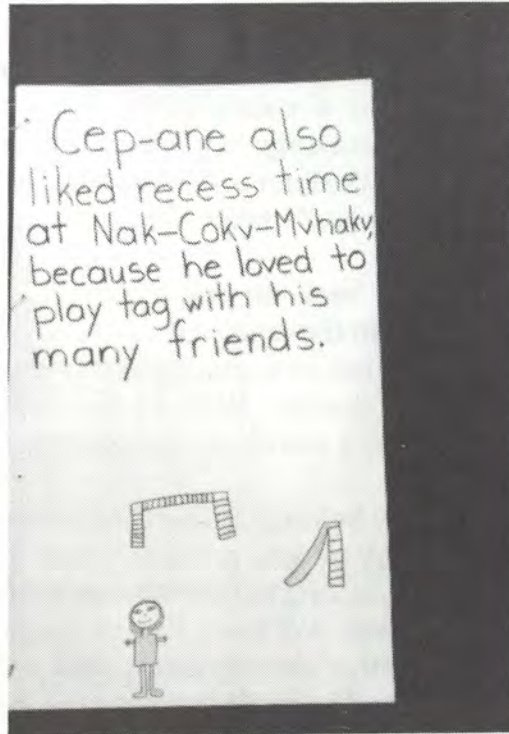 Cep-ane also
liked recess time
at Nak-Cokv-Mvhakv,
because he loved to
play tag with his
many friends.